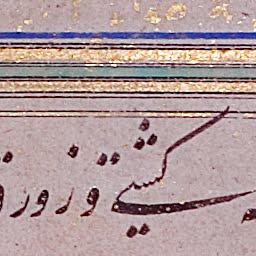 کشتی و زورق